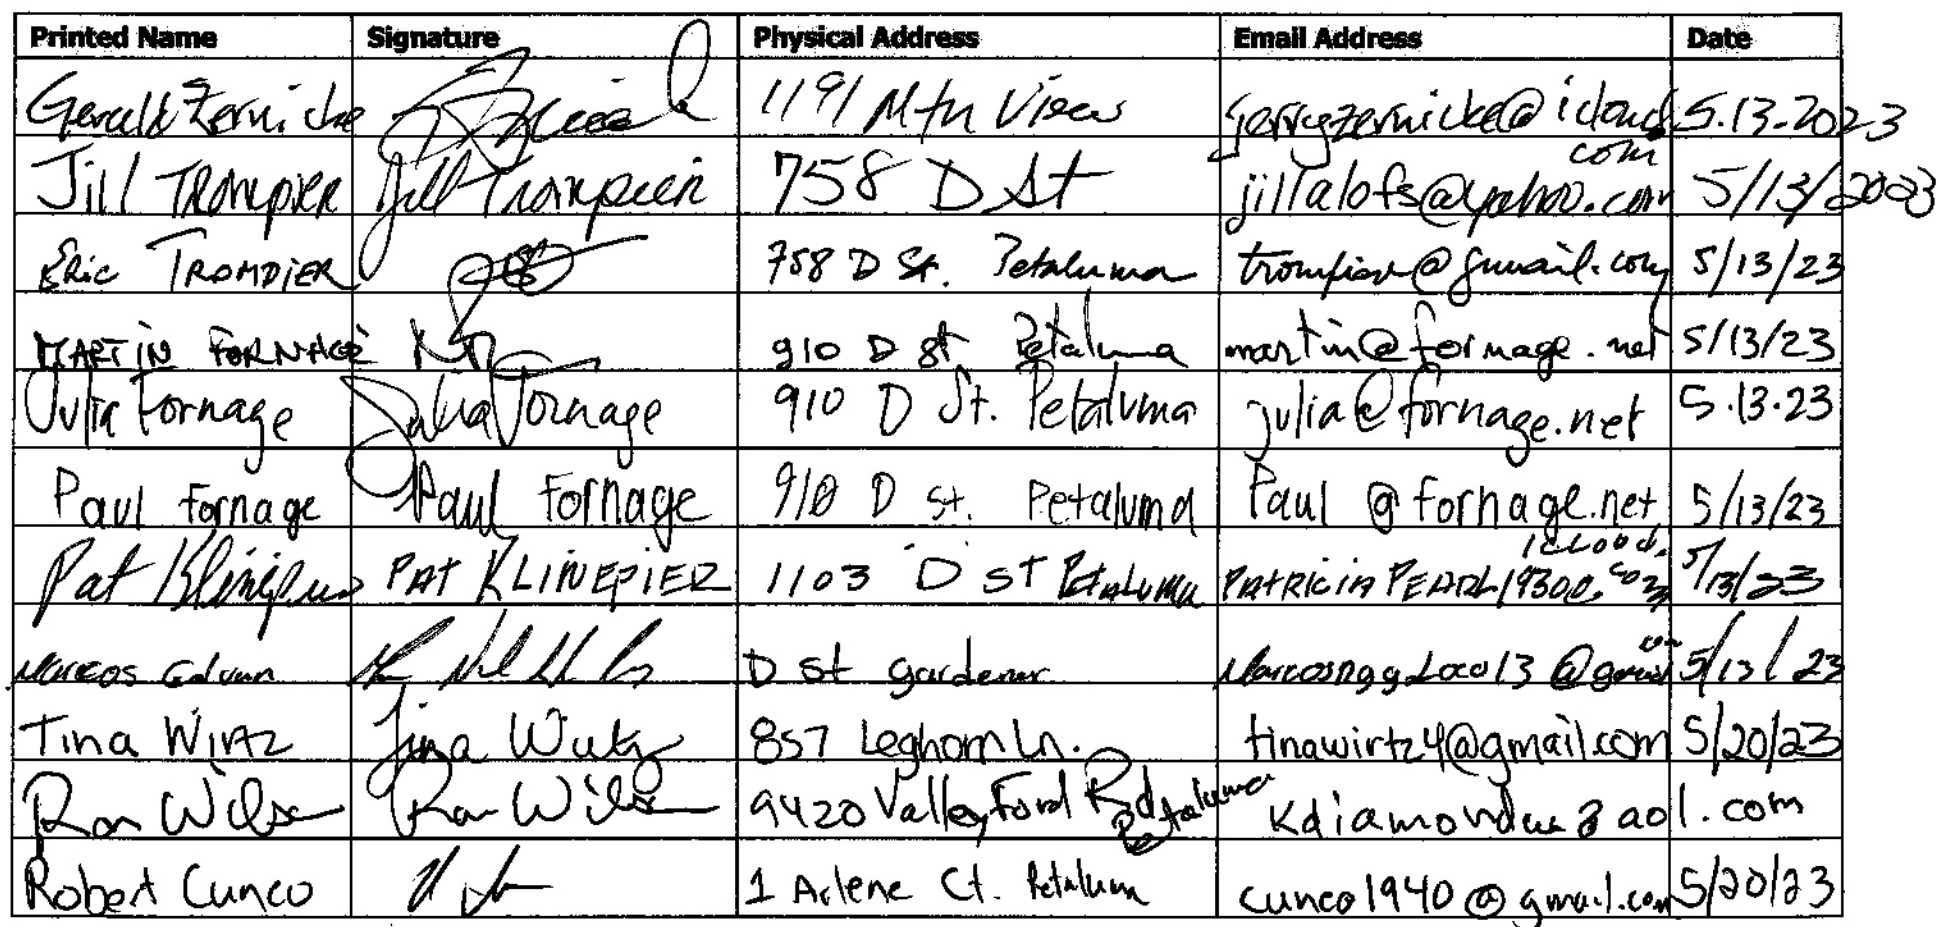 Printed Name Signature Physical Address Email Address Date
Gerald Zernicke 1191 Mtn View jerryzernicke@icloud 5.13.2023
com
Jill TROMPIER Jill Trompier 758 D St jilltalofs@yahoo.com 5/13/2023
Eric TROMPIER 758 D St. Petaluma trompier@gmail.com 5/13/23
MARTIN FORNAGE 910 D st Petaluma martin@fornage.net 5/13/23
Julia Fornage Julia Fornage 910 D St. Petaluma julia@fornage.net 5.13.23
Paul Fornage Paul Fornage 910 D st. Petaluma Paul @fornage.net 5/13/23
icloud.
Pat Klinepier PAT KLINEPIER 1103 D ST Petaluma PATRICIA PEARL1930@.com 5/13/23
Marcos Galvan D st gardener 5/13/23
Tina Wirtz Tina Wirtz 857 Leghorn Ln. tinawirtz4@gmail.com 5/20/23
Ron Wilson Ron Wilson 9420 Valley Ford Rd Petaluma aol.com
Robert Cunco 1 Arlene Ct. Petaluma cunco1940@gmail.com 5/20/23